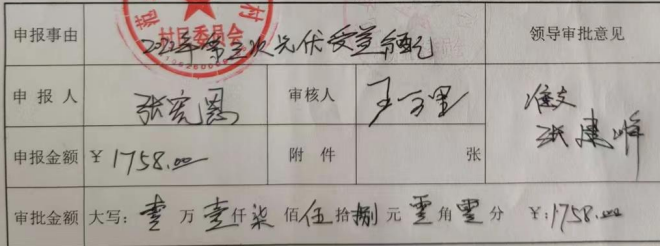 村
村民委员会
申报事由 2022年第三次光伏受益领元 领导审批意见
申报人 张宪恩 审核人 王万里 准支
张建峰
申报金额 ￥1758.00 附件 张
审批金额 大写：壹万壹仟柒佰伍拾捌元零角零分 ￥:1758.00